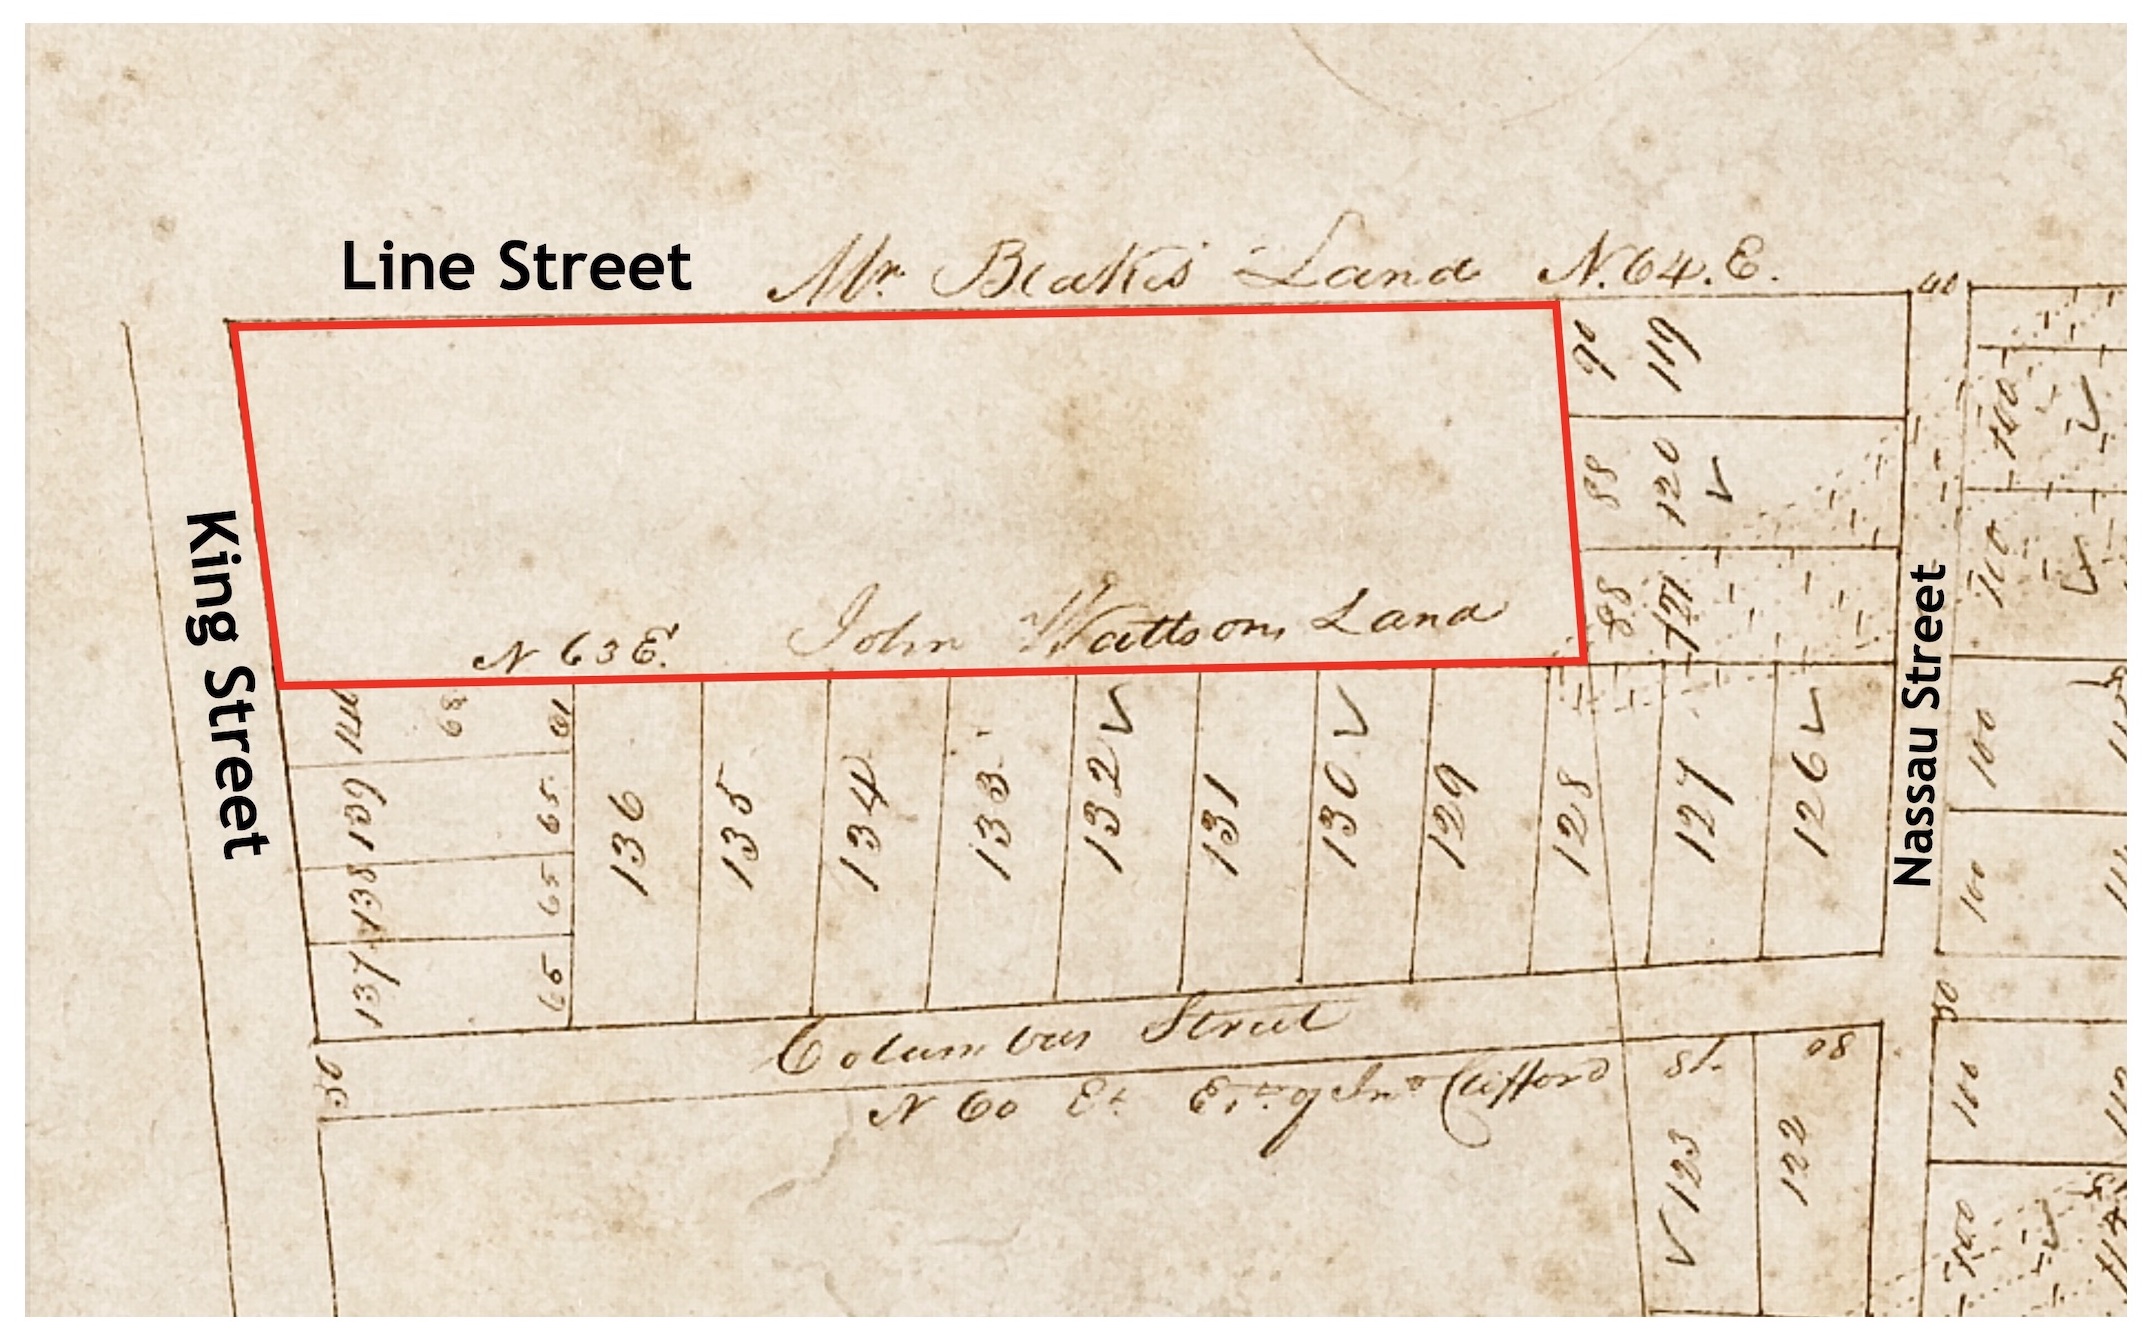 Line Street
Mr. Blakes Land N.64.E.
40
90 119
88 120
88 121
100
100
N 63 E. John Wattsons Land
King Street
Nassau Street
68 61
139 65
138 65
137 65
136
135
134
133
132
131
130
129
128
127
126
100
100
Columbus Street
50
30
N 60 Et. Jno. Clifford
81
80
123
122
100
100